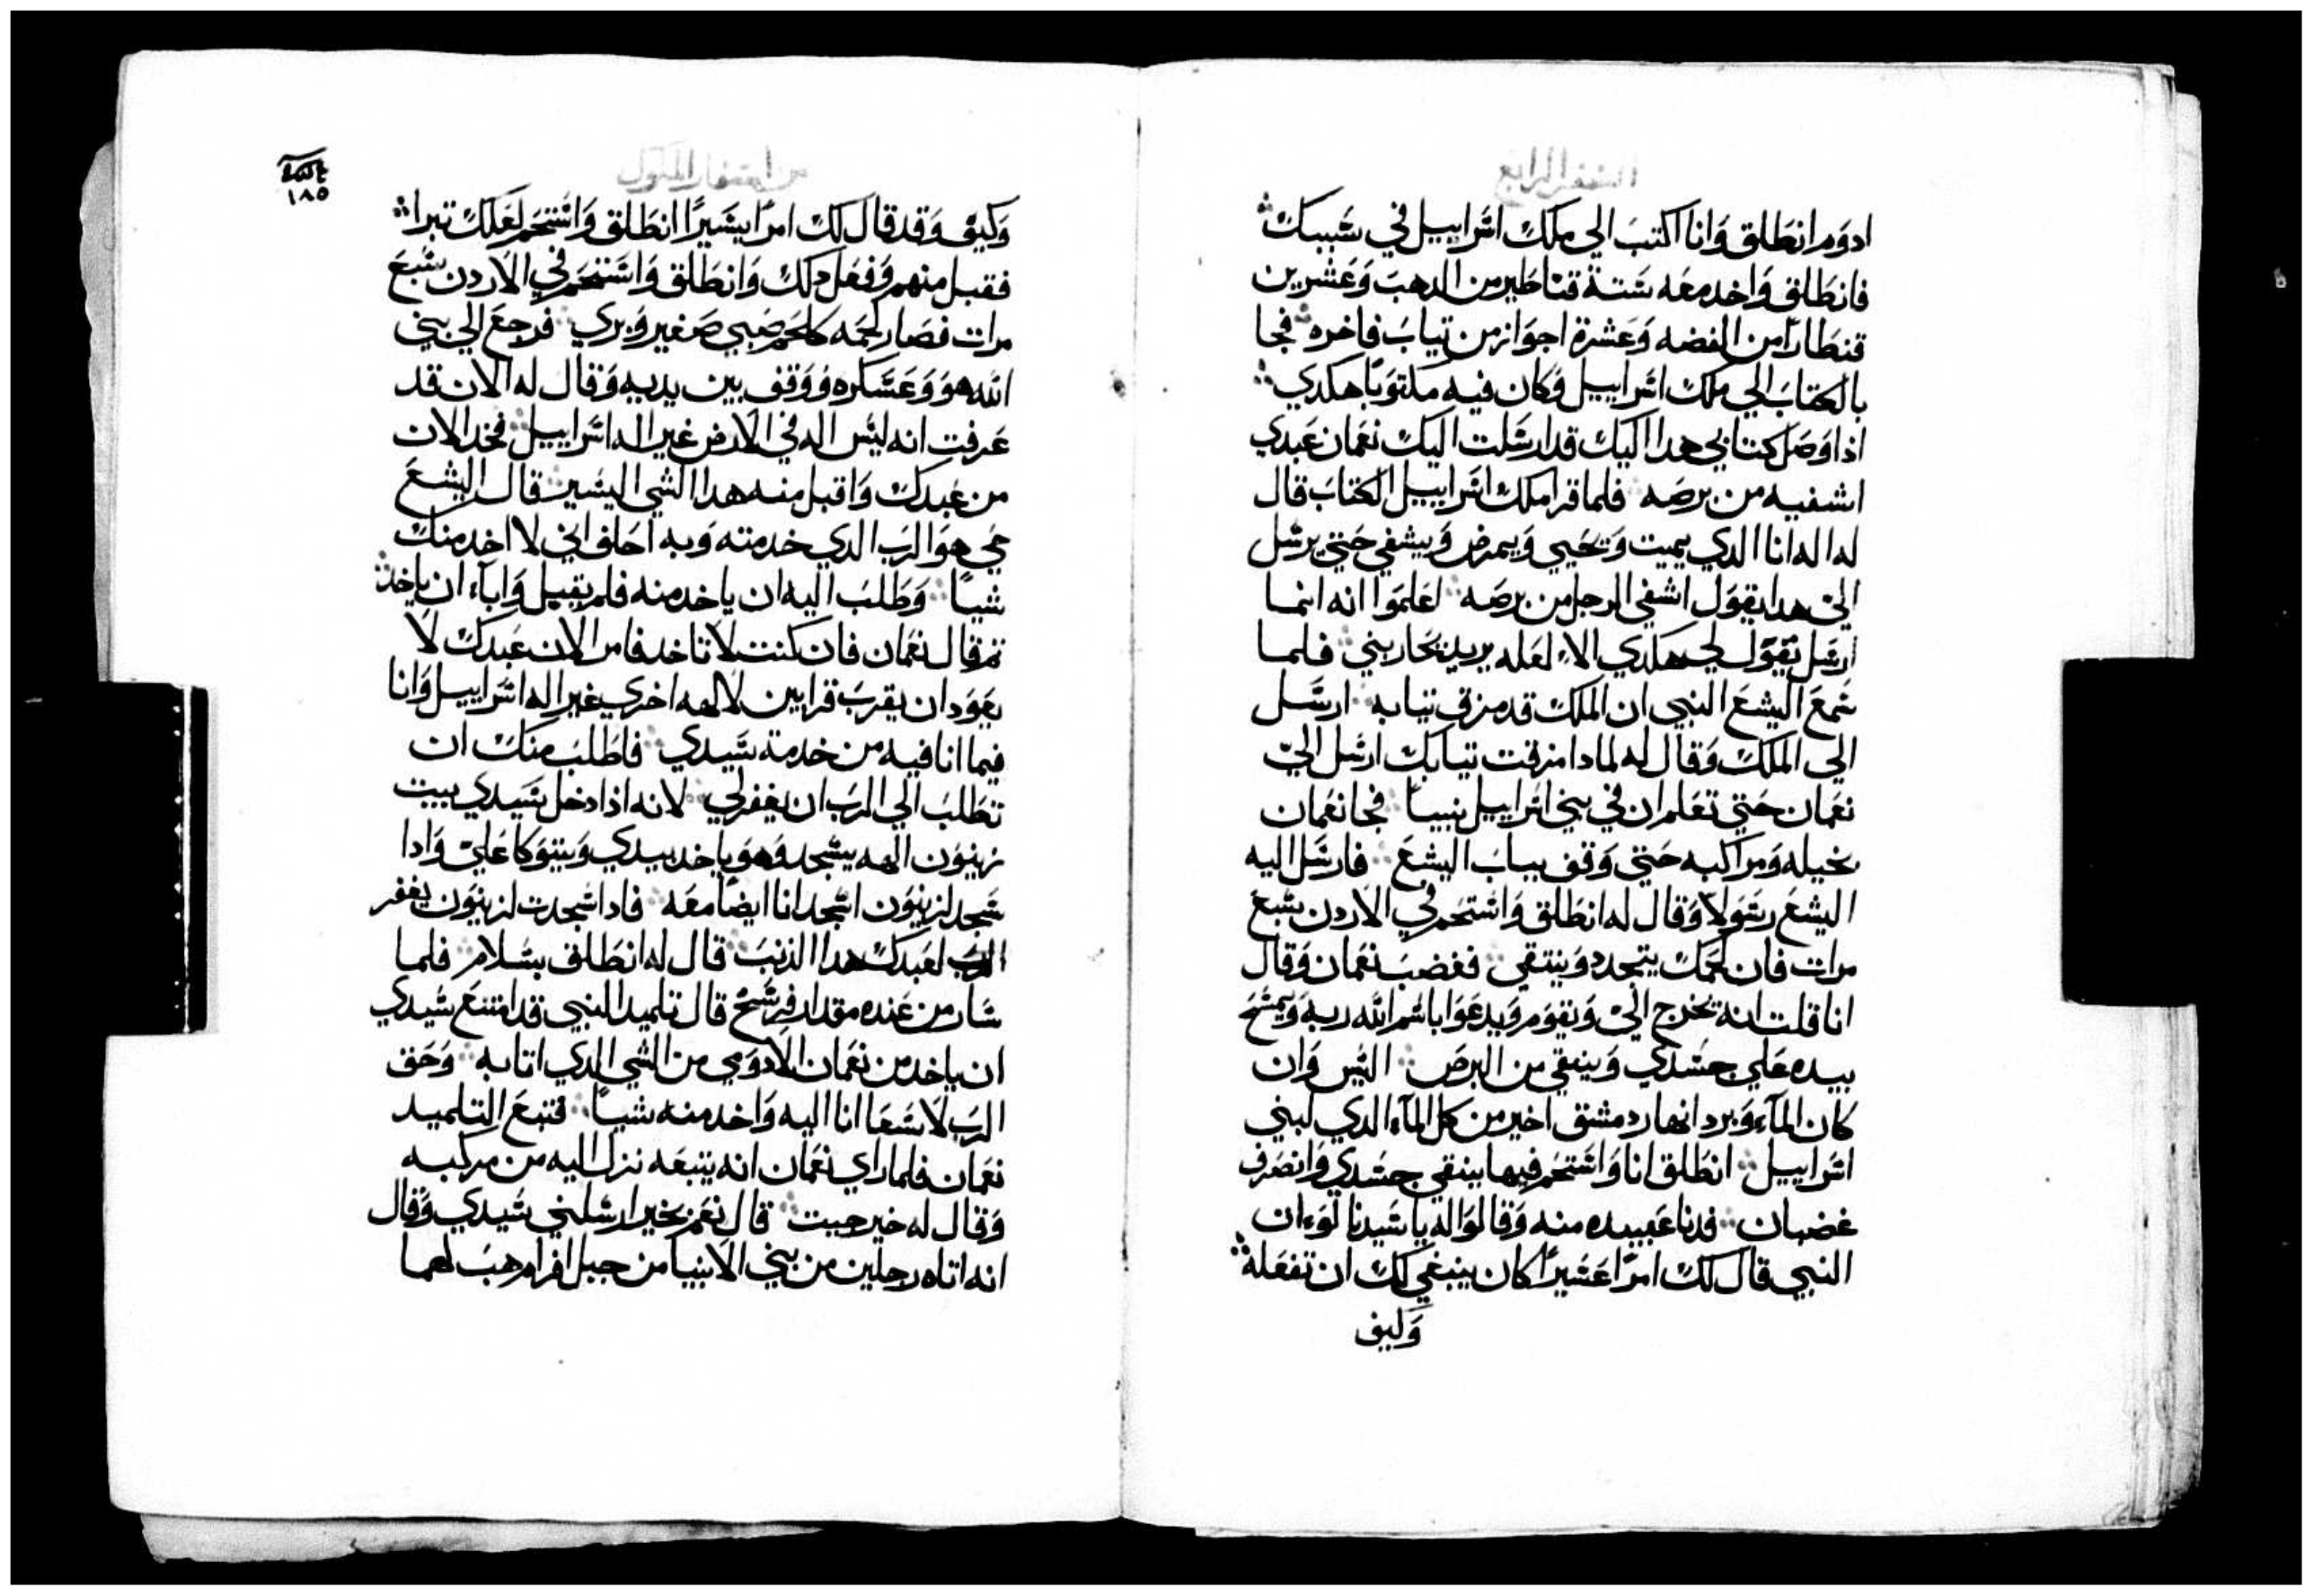 السفر الرابع
ادوم انطلق وانا اكتب الي ملك اسراييل في سببك
فانطلق واخد معه ستة قناطير من الدهب وعشرين
قنطارًا من الفضه وعشرة اجواز من تياب فاخره فجا
بالكتاب الي ملك اسراييل وكان فيه مكتوبًا هكدي
اذا وصل كتابي هدا اليك قد ارسلت اليك نعمان عبدي
اشفيه من برصه فلما قرا ملك اسراييل الكتاب قال
له اله انا الدي يميت ويحيي ويمرض ويشفي حتي يرسل
الي هدا يقول اشفي الرجل من برصه اعلموا انه انما
ارسل يقول لي هكدي الا لعله يريد يحاربني فلما
سمع اليشع النبي ان الملك قد مزق تيابه ارسل
الي الملك وقال له لمادا مزقت تيابك ارسل اليّ
نعمان حتي تعلم ان في بني اسراييل نبيًا فجا نعمان
بخيله ومراكبه حتي وقف بباب اليشع فارسل اليه
اليشع رسولًا وقال له انطلق واستحم في الاردن سبع
مرات فان لحمك يتجدد وينتقي فغضب نعمان وقال
انا قلت انه يخرج الي ويقوم ويدعوا باسم الله ربه ويمسح
بيده علي جسدي وينقي من البرص اليس وان
كان المآء وبرد انهار دمشق اخير من كل المآء الدي لبني
اسراييل انطلق انا واستحم فيها ينقي جسدي وانصرف
غضبان فدنا عبيده منه وقالوا له يا سيدنا لوء ان
النبي قال لك امرًا عسيرًا كان ينبغي لك ان تفعله
وكيف
من اسفار الملوك
١٨٥
وكيف وقد قال لك امرًا يسيرًا انطلق واستحم لعلك تبرا
فقبل منهم وفعل دلك وانطلق واستحم في الاردن سبع
مرات فصار لحمه كلحم صبي صغير وبري فرجع الي بني
الله هو وعسكره ووقف بين يديه وقال له الان قد
عرفت انه ليس اله في الارض غير اله اسراييل فخد الان
من عبدك واقبل منه هدا الشي اليسير قال اليشع
حي هو الرب الدي خدمته وبه احلف اني لا اخد منك
شيًا وطلب اليه ان ياخد منه فلم يقبل واباء ان ياخد
تم قال نعمان فان كنت لا تاخد فامر الان عبدك لا
يعود ان يقرب قرابين لالهه اخري غير اله اسراييل وانا
فيما انا فيه من خدمة سيدي فاطلب منك ان
تطلب الي الرب ان يغفر لي لانه اذا دخل سيدي بيت
زينون الهه يسجد وهو ياخد بيدي ويتوكا علي وادا
سجد لزينون اسجد انا ايضًا معه فادا سجدت لزينون يغفر
الرب لعبدك هدا الذنب قال له انطلق بسلام فلما
سار من عنده مقدار فرسخ قال تلميد النبي قد امتنع سيدي
ان ياخد من نعمان الادومي من الشي الدي اتا به وحق
الرب لاسعا انا اليه واخد منه شيًا فتبع التلميد
نعمان فلما راي نعمان انه يتبعه نزل اليه من مركبه
وقال له خير جيت قال نعم بخير ارسلني سيدي وقال
انه اتاه رجلين من بني الانبيا من جبل افرام هب لهما